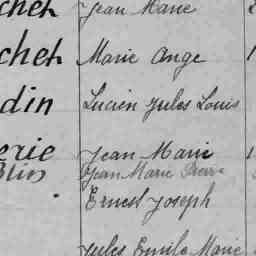 chet Jean Marie
chet Marie Ange
din Lucien Jules Louis
erie Jean Marie
Blin Jean Marie Pierre
Ernest Joseph
Jules Emile Marie